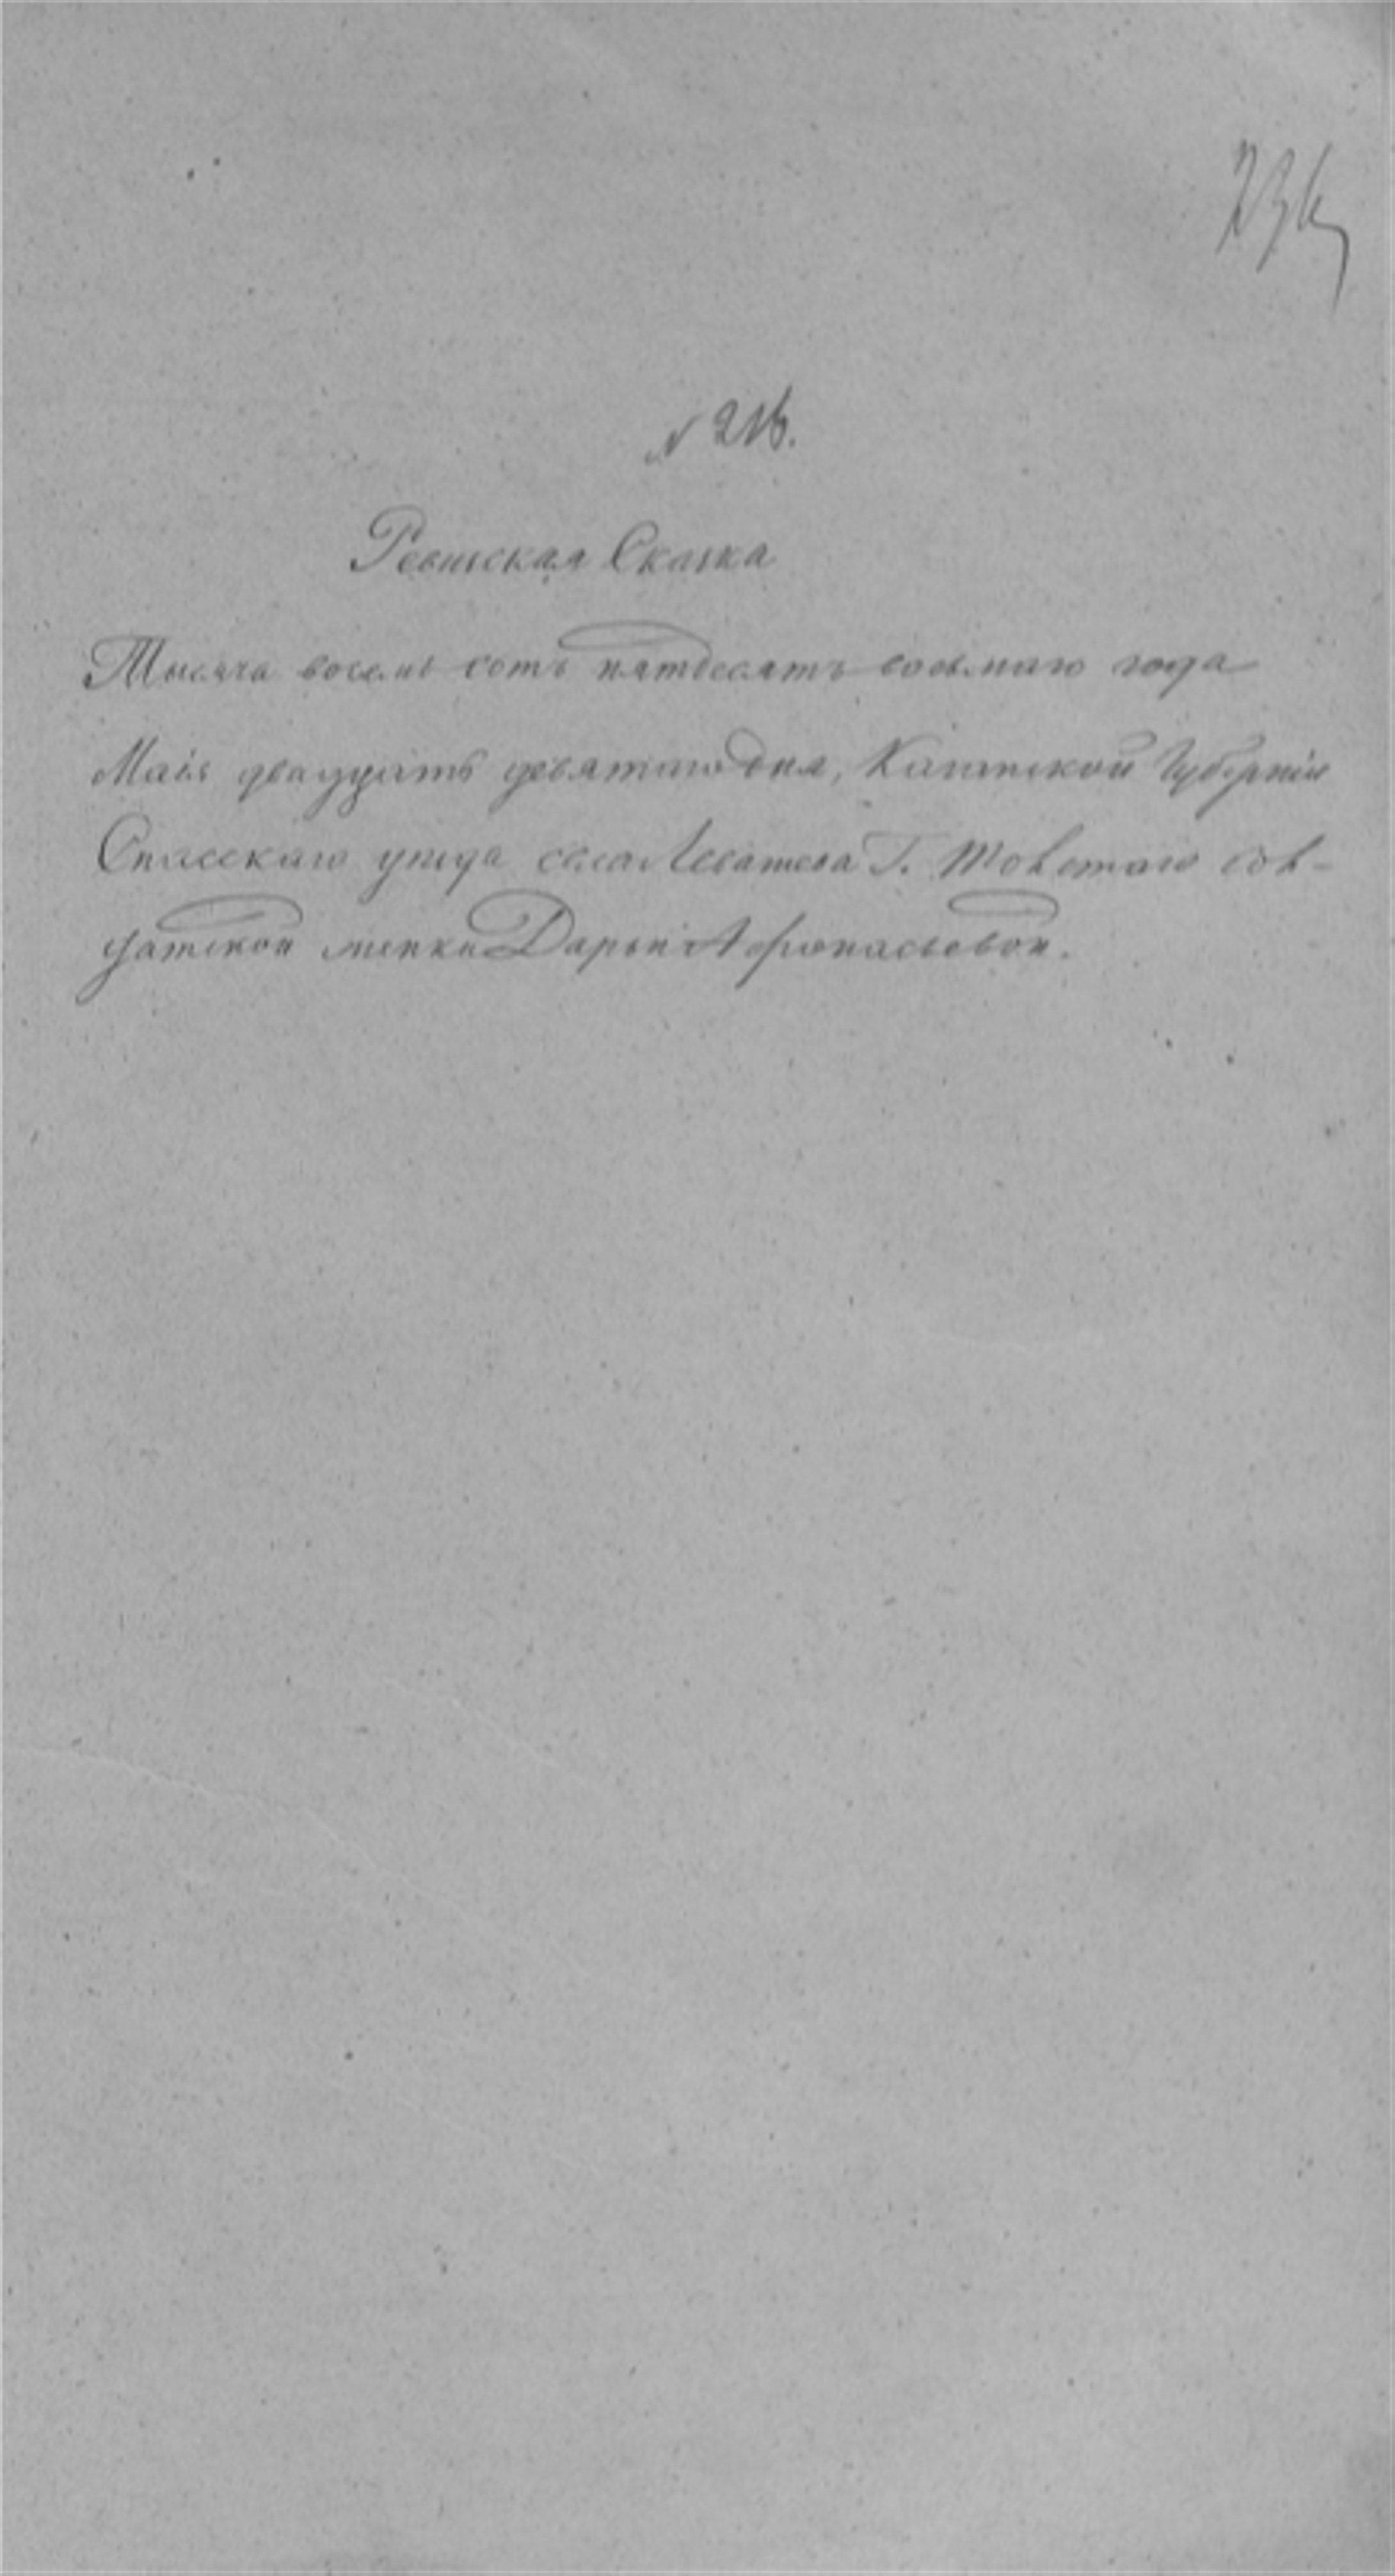 № 216.
Ревизская Сказка
Тысяча восемь сотъ пятдесятъ восьмаго года
Маія двадцать девятаго дня, Казанской Губерніи
Спасскаго уезда села Левашева Г. Толстаго сол-
датской женки Дарьи Афонасьевой.